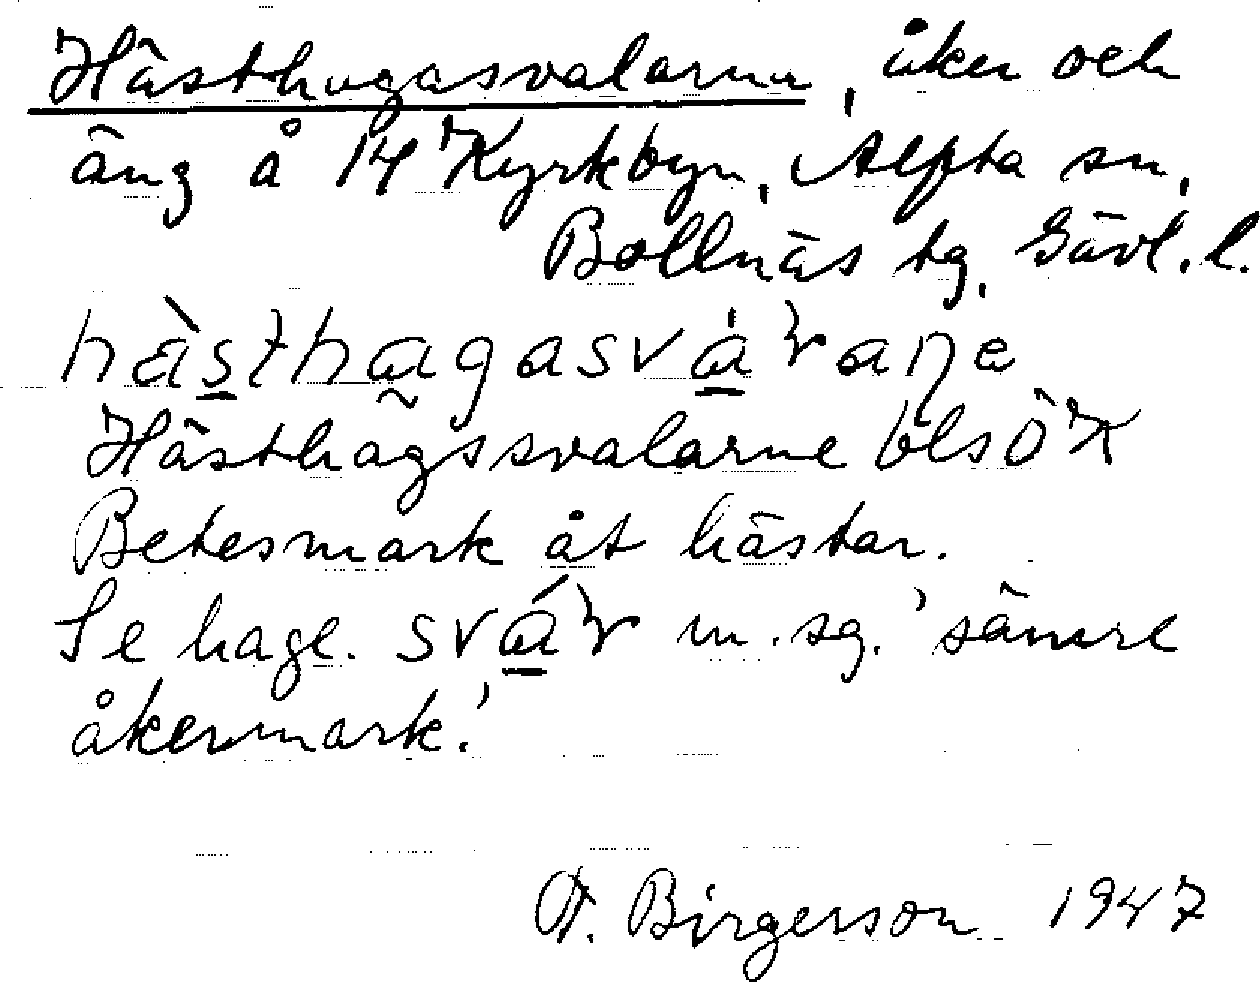 Hästhagasvalarna, åker och
äng å 14 Kyrkbyn, Alfta sn,
Bollnäs tg, Gävl. l.
Hästhagssvalarne blsÖK
Betesmark åt hästar.
Se hage. m. sg. 'sämre
åkermark.'
A. Birgerson 1947